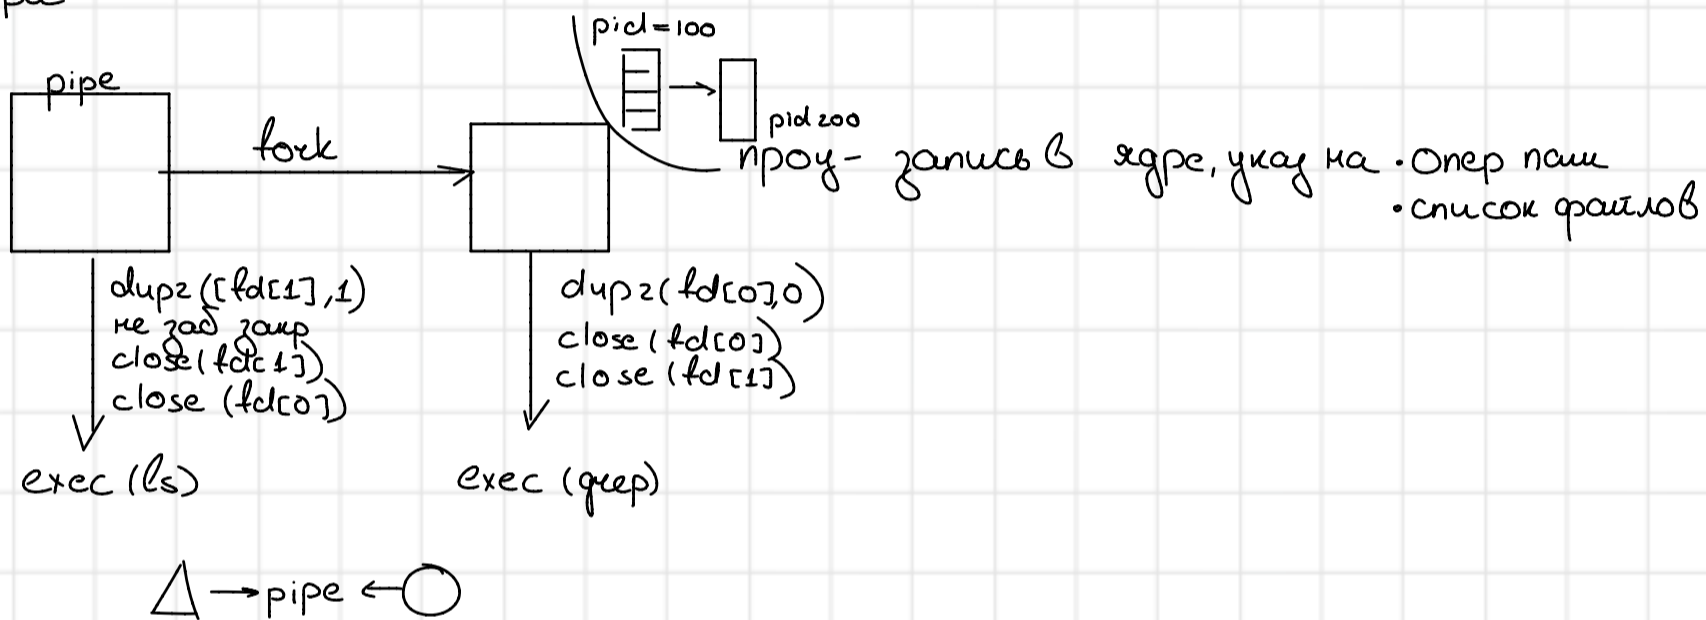 pipe
fork
pid=100
pid200
проц- запись в ядре, указ на • Опер пам
• список файлов
dup2([fd[1],1)
не заб закр
close(fd[1])
close (fd[0])
exec (ls)
dup2(fd[0],0)
close (fd[0])
close (fd[1])
exec (grep)
→pipe←